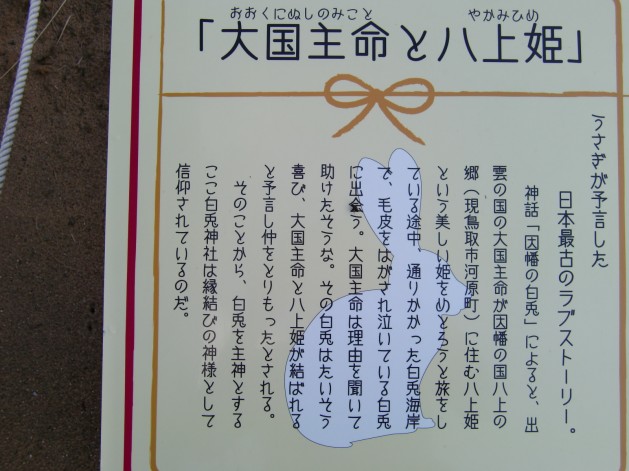 おおくにぬしのみこと やかみひめ
「大国主命と八上姫」
うさぎが予言した
日本最古のラブストーリー。
神話「因幡の白兎」によると、出
雲の国の大国主命が因幡の国八上の
郷(現鳥取市河原町)に住む八上姫
という美しい姫をめとろうと旅をし
ている途中、通りかかった白兎海岸
で、毛皮をはがされ泣いている白兎
に出会う。大国主命は理由を聞いて
助けたそうな。その白兎はたいそう
喜び、大国主命と八上姫が結ばれる
と予言し仲をとりもったとされる。
そのことから、白兎を主神とする
ここ白兎神社は縁結びの神様として
信仰されているのだ。